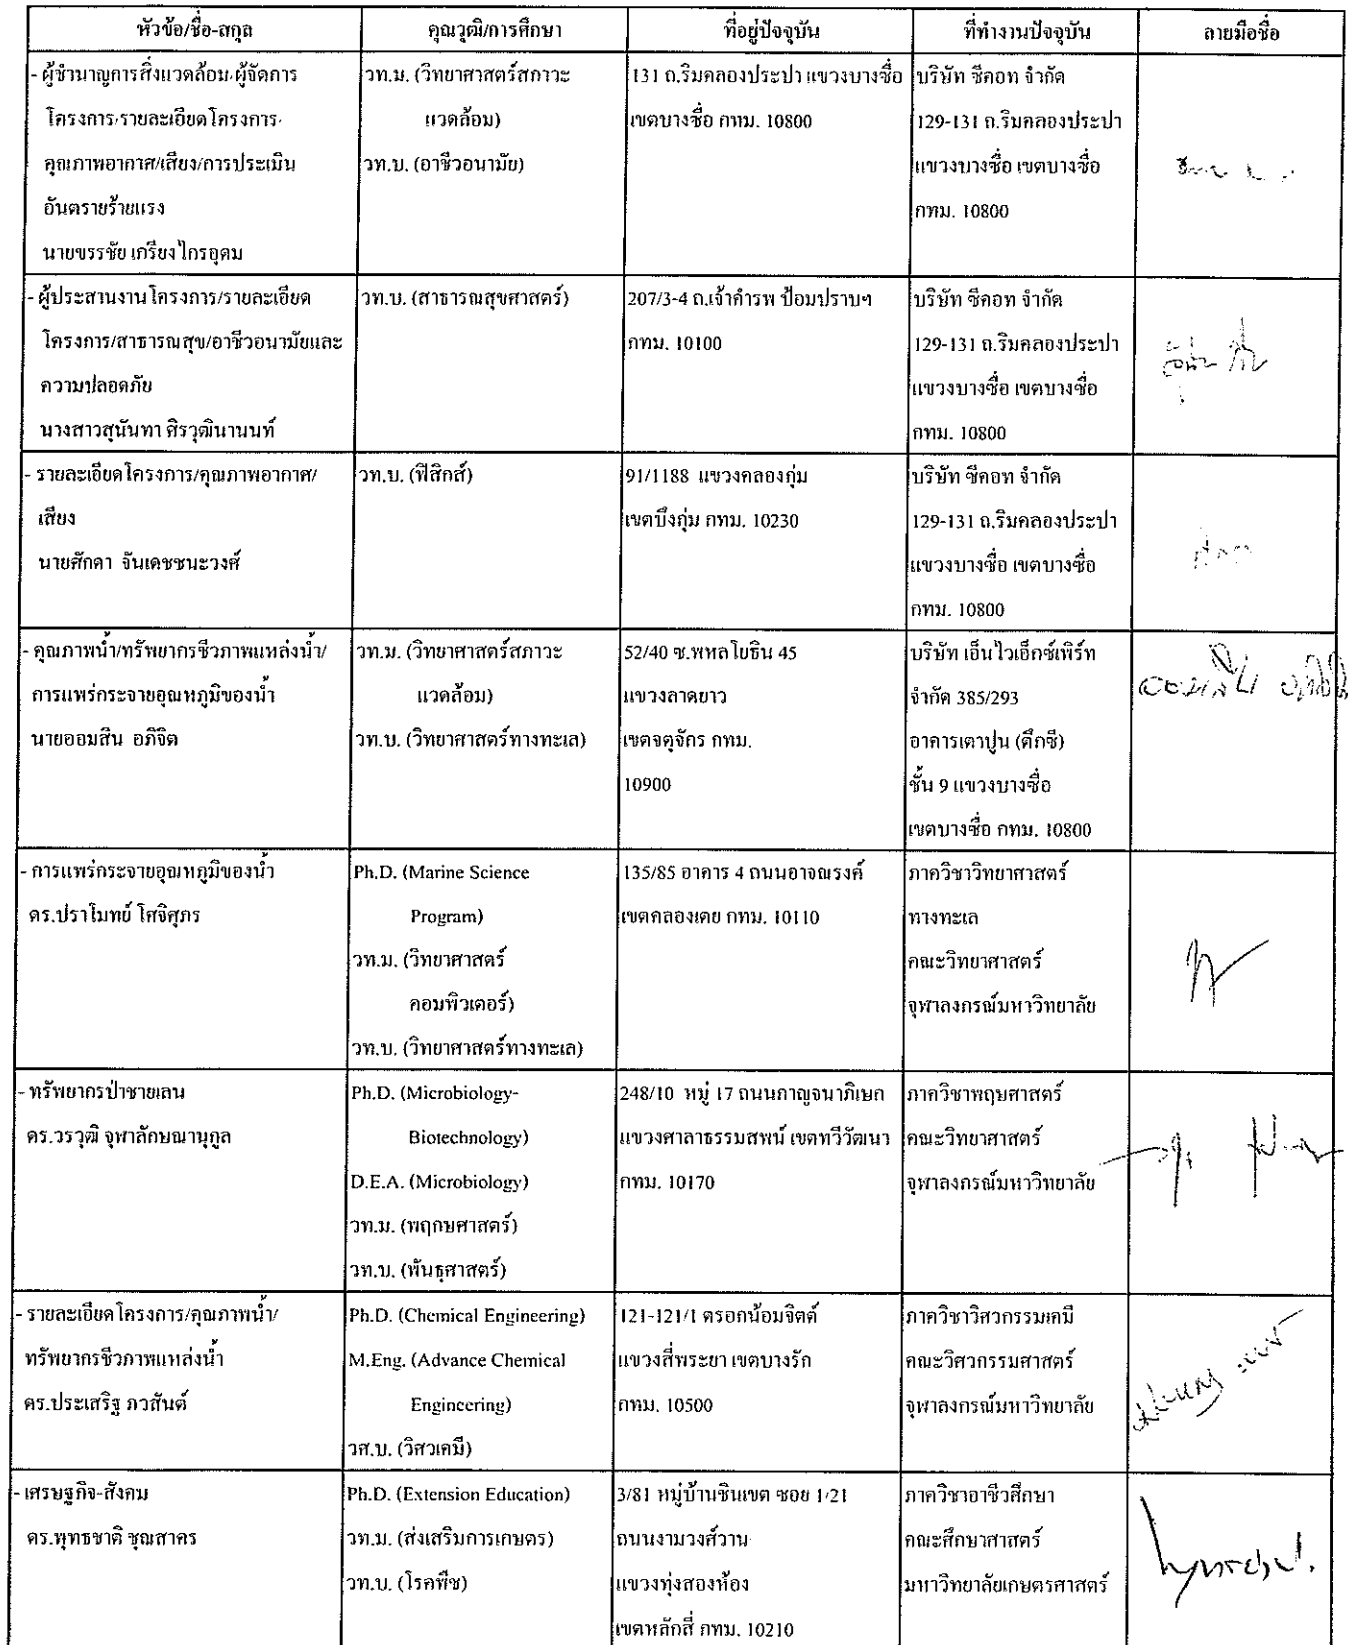 หัวข้อ/ชื่อ-สกุล
คุณวุฒิ/การศึกษา
ที่อยู่ปัจจุบัน
ที่ทำงานปัจจุบัน
ลายมือชื่อ
- ผู้ชำนาญการสิ่งแวดล้อม/ผู้จัดการ
โครงการ/รายละเอียดโครงการ/
คุณภาพอากาศ/เสียง/การประเมิน
อันตรายร้ายแรง
นายขรรชัย เกรียงไกรอุดม
วท.ม. (วิทยาศาสตร์สภาวะ
แวดล้อม)
วท.บ. (อาชีวอนามัย)
131 ถ.ริมคลองประปา แขวงบางซื่อ
เขตบางซื่อ กทม. 10800
บริษัท ซีคอท จำกัด
129-131 ถ.ริมคลองประปา
แขวงบางซื่อ เขตบางซื่อ
กทม. 10800
- ผู้ประสานงานโครงการ/รายละเอียด
โครงการ/สาธารณสุข/อาชีวอนามัยและ
ความปลอดภัย
นางสาวสุนันทา ศิรวุฒินานนท์
วท.บ. (สาธารณสุขศาสตร์)
207/3-4 ถ.เจ้าคำรพ ป้อมปราบฯ
กทม. 10100
บริษัท ซีคอท จำกัด
129-131 ถ.ริมคลองประปา
แขวงบางซื่อ เขตบางซื่อ
กทม. 10800
- รายละเอียดโครงการ/คุณภาพอากาศ/
เสียง
นายศักดา จันเดชชนะวงศ์
วท.บ. (ฟิสิกส์)
91/1188 แขวงคลองกุ่ม
เขตบึงกุ่ม กทม. 10230
บริษัท ซีคอท จำกัด
129-131 ถ.ริมคลองประปา
แขวงบางซื่อ เขตบางซื่อ
กทม. 10800
- คุณภาพน้ำ/ทรัพยากรชีวภาพแหล่งน้ำ/
การแพร่กระจายอุณหภูมิของน้ำ
นายออมสิน อภิจิต
วท.ม. (วิทยาศาสตร์สภาวะ
แวดล้อม)
วท.บ. (วิทยาศาสตร์ทางทะเล)
52/40 ซ.พหลโยธิน 45
แขวงลาดยาว
เขตจตุจักร กทม.
10900
บริษัท เอ็นไวเอ็กซ์เพิร์ท
จำกัด 385/293
อาคารเตาปูน (ตึกซี)
ชั้น 9 แขวงบางซื่อ
เขตบางซื่อ กทม. 10800
ออมสิน อภิจิต
- การแพร่กระจายอุณหภูมิของน้ำ
ดร.ปราโมทย์ โศจิศุภร
Ph.D. (Marine Science
Program)
วท.ม. (วิทยาศาสตร์
คอมพิวเตอร์)
วท.บ. (วิทยาศาสตร์ทางทะเล)
135/85 อาคาร 4 ถนนอาจณรงค์
เขตคลองเตย กทม. 10110
ภาควิชาวิทยาศาสตร์
ทางทะเล
คณะวิทยาศาสตร์
จุฬาลงกรณ์มหาวิทยาลัย
- ทรัพยากรป่าชายเลน
ดร.วรวุฒิ จุฬาลักษณานุกูล
Ph.D. (Microbiology-
Biotechnology)
D.E.A. (Microbiology)
วท.ม. (พฤกษศาสตร์)
วท.บ. (พันธุศาสตร์)
248/10 หมู่ 17 ถนนกาญจนาภิเษก
แขวงศาลาธรรมสพน์ เขตทวีวัฒนา
กทม. 10170
ภาควิชาพฤษศาสตร์
คณะวิทยาศาสตร์
จุฬาลงกรณ์มหาวิทยาลัย
- รายละเอียดโครงการ/คุณภาพน้ำ/
ทรัพยากรชีวภาพแหล่งน้ำ
ดร.ประเสริฐ ภวสันต์
Ph.D. (Chemical Engineering)
M.Eng. (Advance Chemical
Engineering)
วศ.บ. (วิศวเคมี)
121-121/1 ตรอกน้อมจิตต์
แขวงสี่พระยา เขตบางรัก
กทม. 10500
ภาควิชาวิศวกรรมเคมี
คณะวิศวกรรมศาสตร์
จุฬาลงกรณ์มหาวิทยาลัย
- เศรษฐกิจ-สังคม
ดร.พุทธชาติ ชุณสาคร
Ph.D. (Extension Education)
วท.ม. (ส่งเสริมการเกษตร)
วท.บ. (โรคพืช)
3/81 หมู่บ้านชินเขต ซอย 1/21
ถนนงามวงศ์วาน
แขวงทุ่งสองห้อง
เขตหลักสี่ กทม. 10210
ภาควิชาอาชีวสึกษา
คณะศึกษาศาสตร์
มหาวิทยาลัยเกษตรศาสตร์